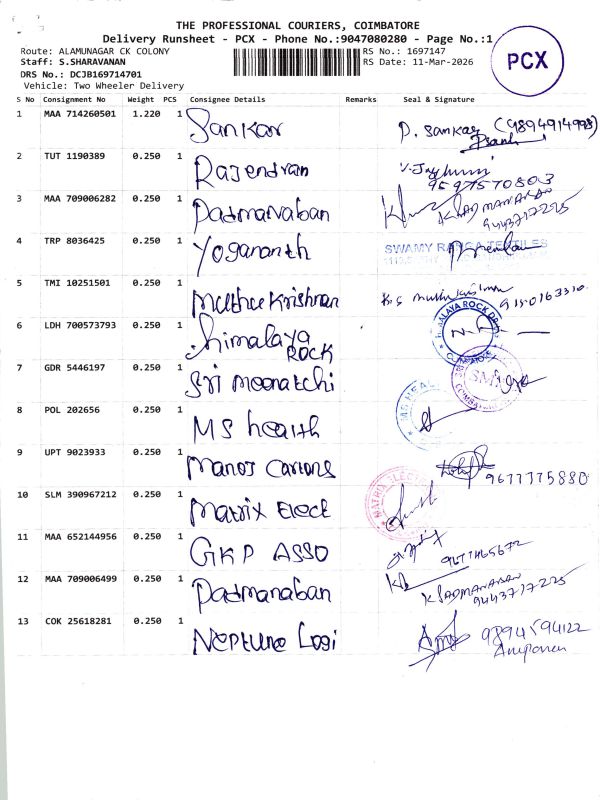 THE PROFESSIONAL COURIERS, COIMBATORE
Delivery Runsheet - PCX - Phone No.:9047080280 - Page No.:1
Route: ALAMUNAGAR CK COLONY
RS No.: 1697147
Staff: S.SHARAVANAN
RS Date: 11-Mar-2026
DRS No.: DCJB169714701
Vehicle: Two Wheeler Delivery
PCX
S No Consignment No Weight PCS Consignee Details Remarks Seal & Signature
1 MAA 714260501 1.220 1 Sankar P. Sankar
2 TUT 1190389 0.250 1 Rajendran 9597570803
3 MAA 709006282 0.250 1 Padmanaban K PADMANABAN
9443717225
4 TRP 8036425 0.250 1 Yogananth SWAMY RANGA TEXTILES
5 TMI 10251501 0.250 1 Muthu Krishnan
6 LDH 700573793 0.250 1 himalaya ROCK
7 GDR 5446197 0.250 1 Sri meenatchi
8 POL 202656 0.250 1 MS health
9 UPT 9023933 0.250 1 Manoj Cartons 9677775880
10 SLM 390967212 0.250 1 Matrix Elect
11 MAA 652144956 0.250 1 GKP ASSO
12 MAA 709006499 0.250 1 Padmanaban K PADMANABAN
9443717225
13 COK 25618281 0.250 1 Neptune Logi 9894594122